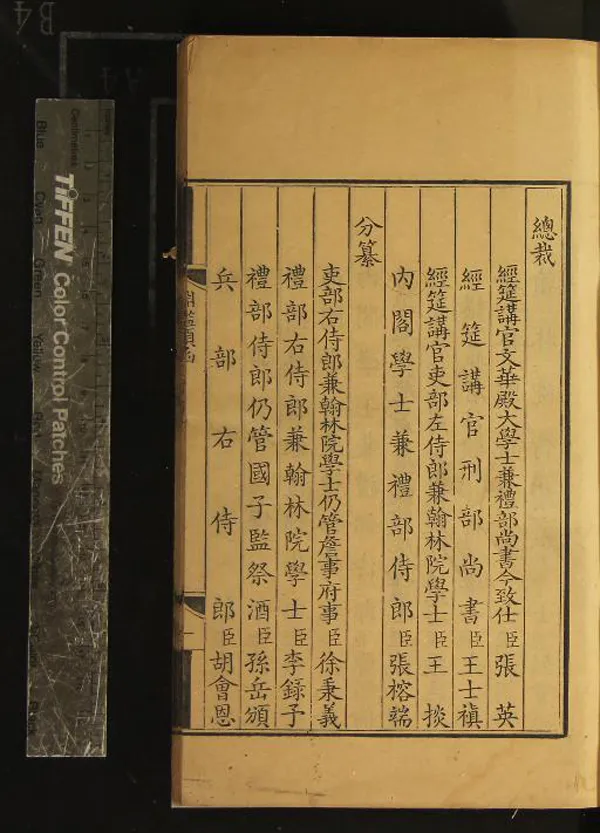 總裁
經筵講官文華殿大學士兼禮部尚書今致仕臣張英
經筵講官刑部尚書臣王士禛
經筵講官吏部左侍郎兼翰林院學士臣王掞
內閣學士兼禮部侍郎臣張榕端
分纂
吏部右侍郎兼翰林院學士仍管詹事府事臣徐秉義
禮部右侍郎兼翰林院學士臣李錄予
禮部侍郎仍管國子監祭酒臣孫岳頒
兵部右侍郎臣胡會恩
TIFFEN Color Control Patches
Centimetres
Blue
Cyan
Green
Yellow
B4